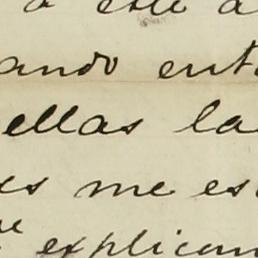 a este a
ando ent
ellas la
es me es
explican